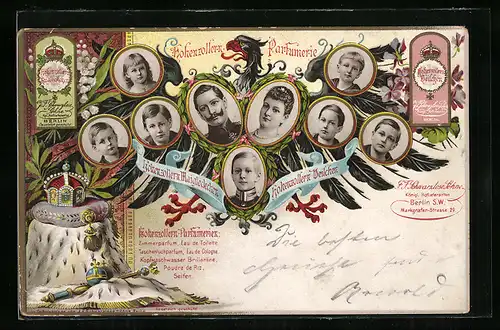 Hohenzollern Parfumerie
Hohenzollern
Veilchen
BERLIN
BERLIN
Hohenzollern Maiglöckchen
Hohenzollern Veilchen
J.F. Schwarzlose Söhne
Königl. Hoflieferanten
Berlin S.W.
Markgrafen-Strasse 29
Hohenzollern-Parfumerien:
Zimmerparfum, Eau de Toilette
Taschentuchparfum, Eau de Cologne
Kopfwaschwasser Brillantine,
Poudre de Riz,
Seifen.
Die besten
Grüsse